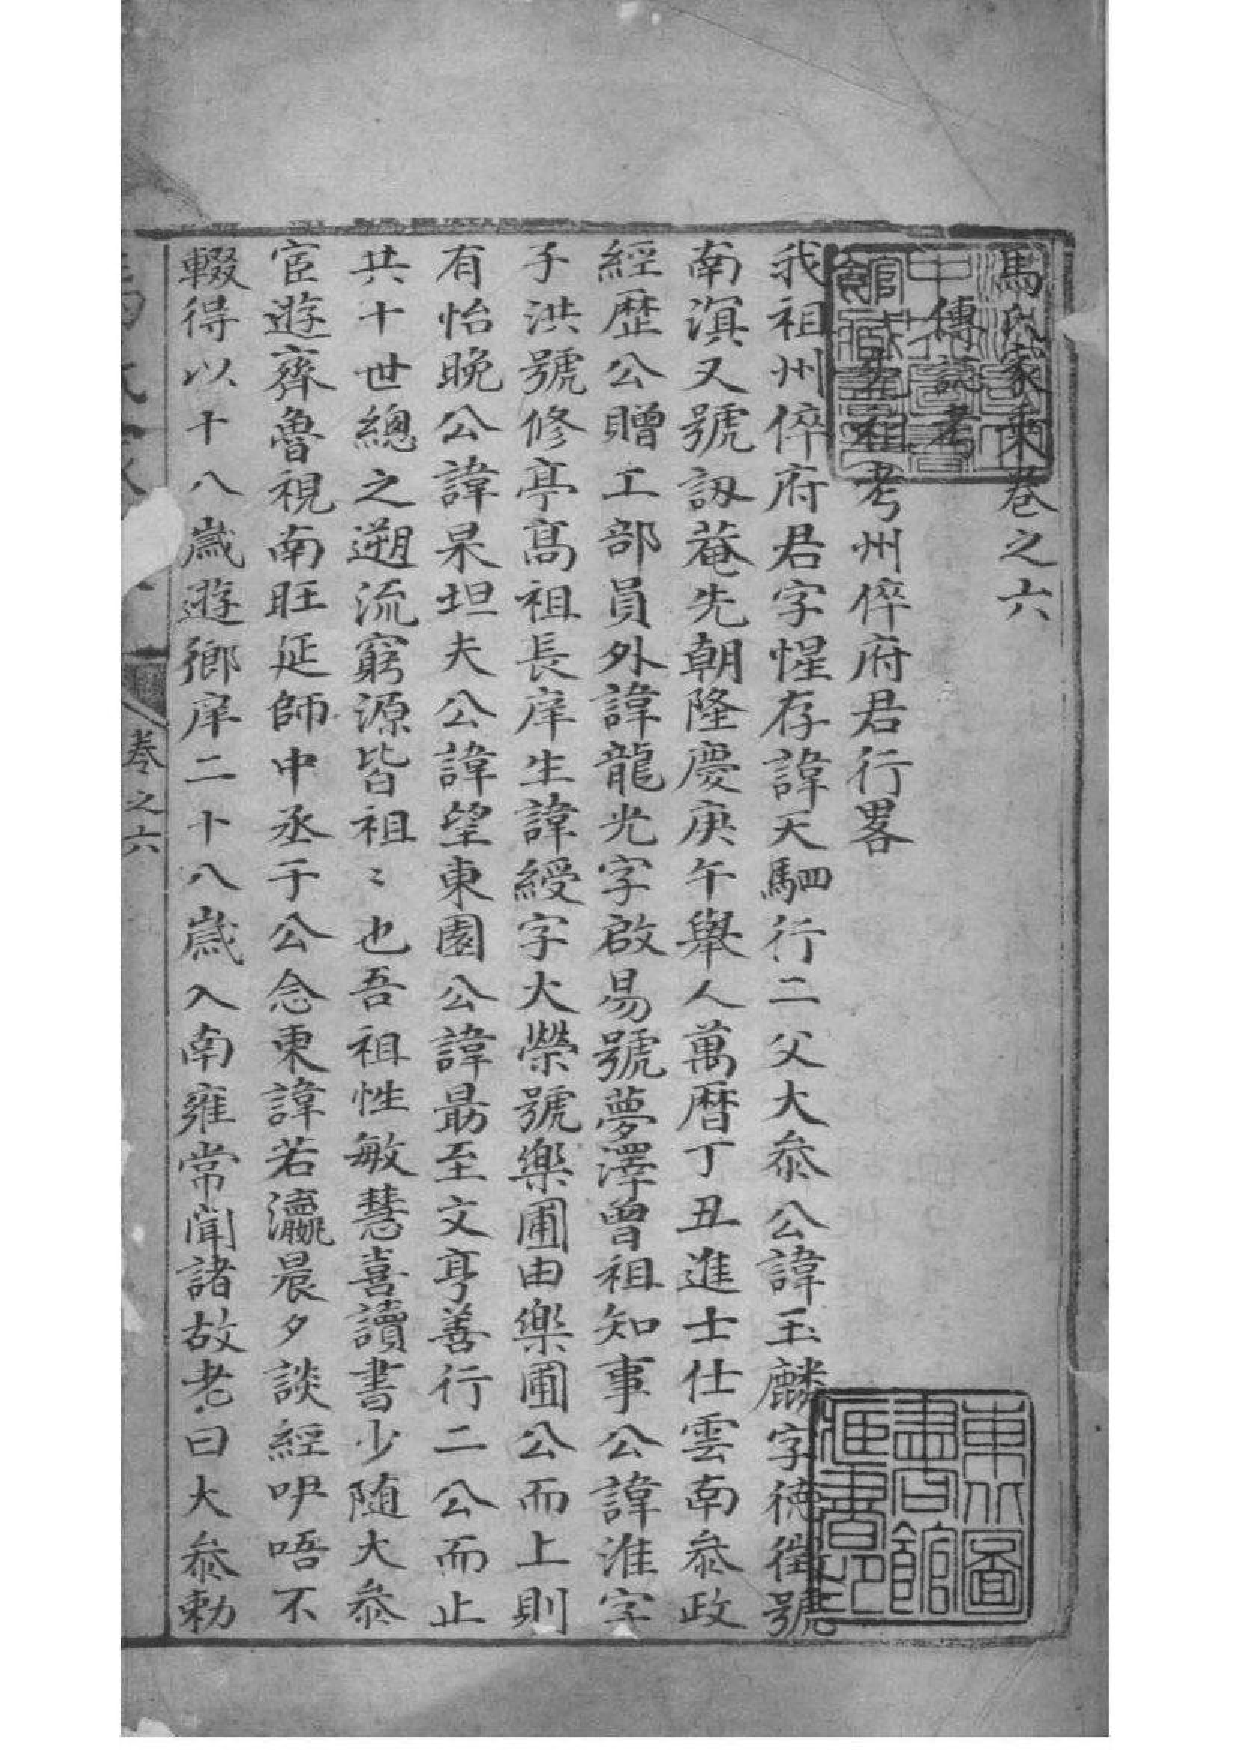 馬氏家乘卷之六
傳誌考
五祖考州倅府君行畧
我祖州倅府君字惺存諱天駟行二父大叅公諱玉麟字徳徵號
南溟又號訒菴先朝隆慶庚午舉人萬曆丁丑進士仕雲南叅政
經歷公贈工部員外諱龍光字啟昜號夢澤曾祖知事公諱淮字
子洪號修亭高祖長庠生諱綬字大榮號樂圃由樂圃公而上則
有怡晚公諱杲坦夫公諱望東園公諱最至文亨善行二公而止
共十世總之遡流窮源皆祖〻也吾祖性敏慧喜讀書少隨大叅
宦遊齊魯視南旺延師中丞于公念東諱若瀛晨夕談經咿唔不
輟得以十八歲遊鄉庠二十八歲入南雍常聞諸故老曰大叅勅
卷之六
東北圖書館藏書印